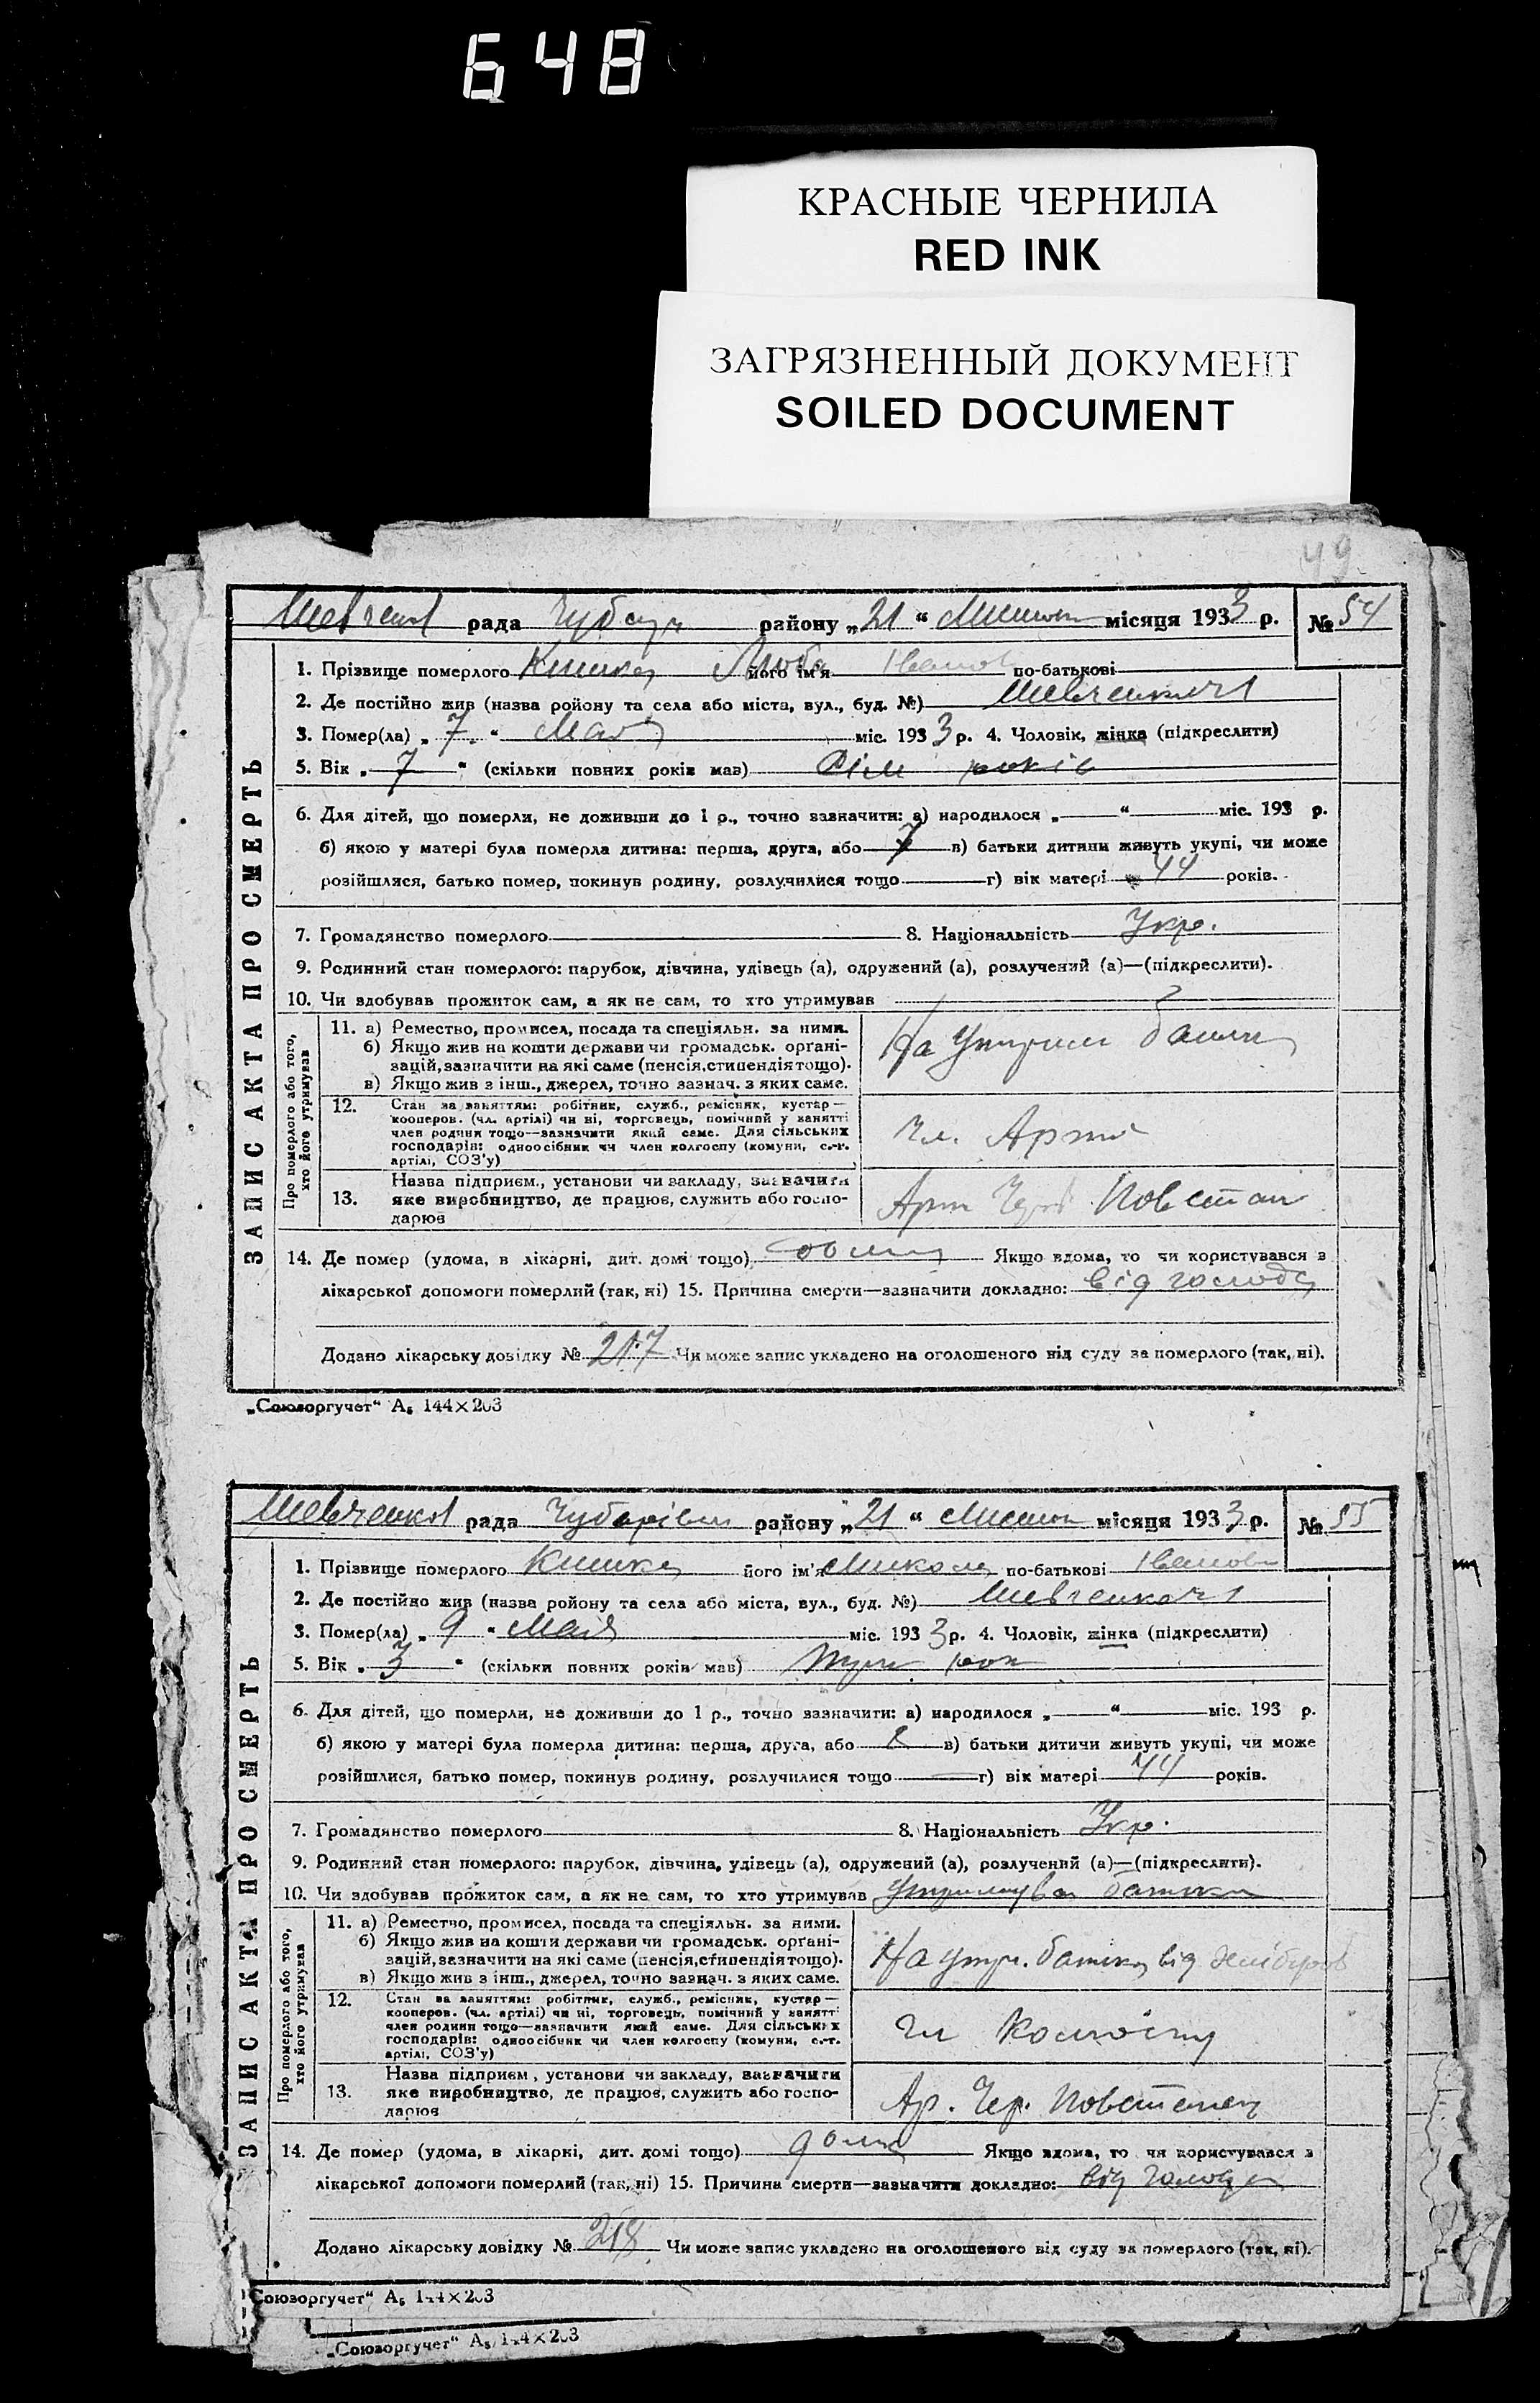 648
КРАСНЫЕ ЧЕРНИЛА
RED INK
ЗАГРЯЗНЕННЫЙ ДОКУМЕНТ
SOILED DOCUMENT
49
рада району „21“ місяця 1933 р. № 54
ЗАПИС АКТА ПРО СМЕРТЬ
1. Прізвище померлого Кишка Люба його ім'я Іванов по-батькові
2. Де постійно жив (назва ройону та села або міста, вул., буд. №)
3. Помер(ла) „7“ Мая міс. 1933 р. 4. Чоловік, жінка (підкреслити)
5. Вік „7“ (скільки повних років мав) Сім років
6. Для дітей, що померли, не доживши до 1 р., точно зазначити: а) народилося „ “ міс. 193 р.
б) якою у матері була померла дитина: перша, друга, або 7 в) батьки дитини живуть укупі, чи може
розійшлися, батько помер, покинув родину, розлучилися тощо г) вік матері 44 років.
7. Громадянство померлого 8. Національність Укр.
9. Родинний стан померлого: парубок, дівчина, удівець (а), одружений (а), розлучений (а)—(підкреслити).
10. Чи здобував прожиток сам, а як не сам, то хто утримував
Про померлого або того, хто його утримував
11. а) Ремество, промисел, посада та спеціяльн. за ними.
б) Якщо жив на кошти держави чи громадськ. органі-
зацій, зазначити на які саме (пенсія, стипендія тощо).
в) Якщо жив з інш., джерел, точно зазнач. з яких саме.
На
12. Стан за заняттям: робітник, служб., ремісник, кустар—
кооперов. (чл. артілі) чи ні, торговець, помічний у занятті
член родини тощо—зазначити який саме. Для сільських
господарів: одноосібник чи член колгоспу (комуни, с.-г.
артілі, СОЗ'у)
чл. Арті
13. Назва підприєм., установи чи закладу, зазначити
яке виробництво, де працює, служить або госпо-
дарює
Арт Повстан
14. Де помер (удома, в лікарні, дит. домі тощо) Якщо вдома, то чи користувався з
лікарської допомоги померлий (так, ні) 15. Причина смерти—зазначити докладно: від голоду
Додано лікарську довідку № 217 Чи може запис укладено на оголошеного від суду за померлого (так, ні).
„Союзоргучет“ А₅ 144×203
рада району „21“ місяця 1933 р. № 55
ЗАПИС АКТА ПРО СМЕРТЬ
1. Прізвище померлого Кишка його ім'я Микола по-батькові Іванови
2. Де постійно жив (назва ройону та села або міста, вул., буд. №)
3. Помер(ла) „9“ Мая міс. 1933 р. 4. Чоловік, жінка (підкреслити)
5. Вік „3“ (скільки повних років мав) Три рок
6. Для дітей, що померли, не доживши до 1 р., точно зазначити: а) народилося „ “ міс. 193 р.
б) якою у матері була померла дитина: перша, друга, або в) батьки дитичи живуть укупі, чи може
розійшлися, батько помер, покинув родину, розлучилися тощо г) вік матері 44 років.
7. Громадянство померлого 8. Національність Укр.
9. Родинний стан померлого: парубок, дівчина, удівець (а), одружений (а), розлучений (а)—(підкреслити).
10. Чи здобував прожиток сам, а як не сам, то хто утримував
Про померлого або того, хто його утримував
11. а) Ремество, промисел, посада та спеціяльн. за ними.
б) Якщо жив на кошти держави чи громадськ. органі-
зацій, зазначити на які саме (пенсія, стипендія тощо).
в) Якщо жив з інш., джерел, точно зазнач. з яких саме.
На утри. батька від
12. Стан за заняттям: робітник, служб., ремісник, кустар—
кооперов. (чл. артілі) чи ні, торговець, помічний у занятті
член родини тощо—зазначити який саме. Для сільських
господарів: одноосібник чи член колгоспу (комуни, с.-г.
артілі, СОЗ'у)
чл Колгоспу
13. Назва підприєм., установи чи закладу, зазначити
яке виробництво, де працює, служить або госпо-
дарює
Ар. Чер. Повстанец
14. Де помер (удома, в лікарні, дит. домі тощо) дома Якщо вдома, то чи користувався з
лікарської допомоги померлий (так, ні) 15. Причина смерти—зазначити докладно: від голоду
Додано лікарську довідку № 218 Чи може запис укладено на оголошеного від суду за померлого (так, ні).
Союзоргучет“ А₅ 144×203
„Союзоргучет“ А₅ 144×203